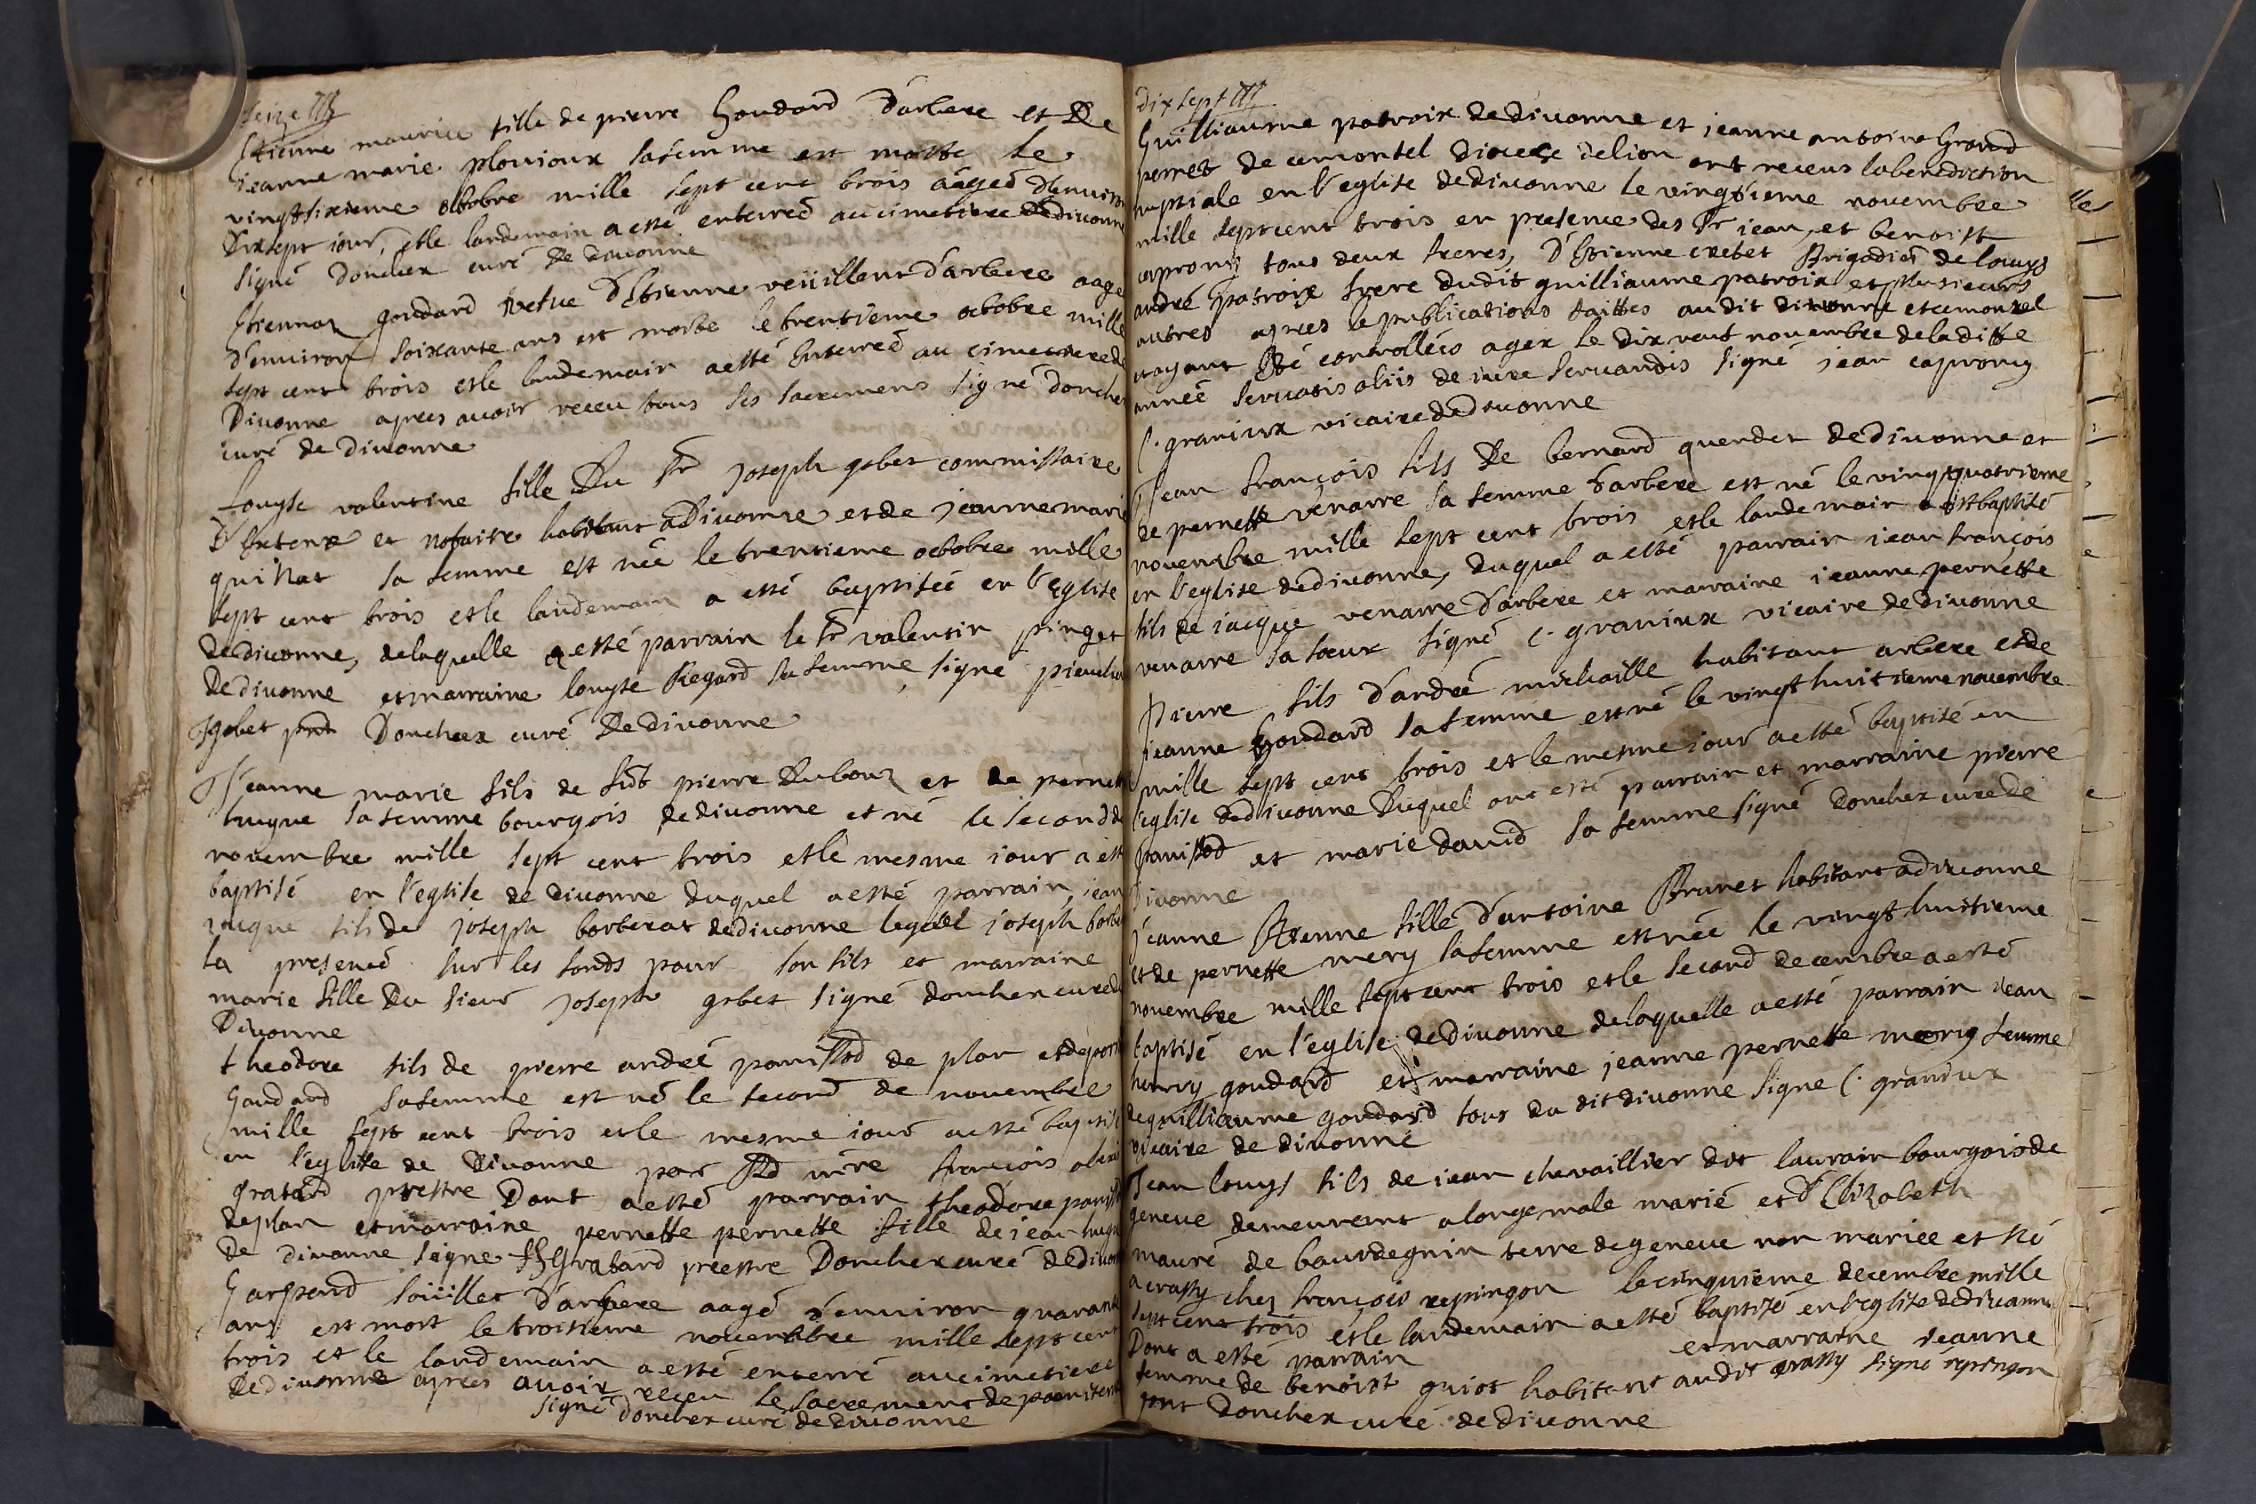 seize
Etienne maurice fille de pierre Goudard d'arbere et De
jeanne marie plouioux sa femme est morte Le
vingtsixieme octobre mille sept cent trois aagee d'enuiron
Dixsept iour, et le landemain a esté enterreé au cimetiere de diuonne
signé Doncher curé De diuonne
Etiennaz goudard vefue d'Etienne veüillent d'arbere aage
d'enuiron soixante ans est morte le trentieme octobre mille
sept cent trois et le landemain a esté Enterreé au cimetiere de
Diuonne apres auoir receu tous ses sacremens signé doncher
curé de diuonne
Louyse valentine fille Du Sr Joseph gobet commissaire
D'Extente et notaire habitant a Diuonne et de jeanne marie
quinat sa femme est neé le trentieme octobre mille
sept cent trois et le landemain a esté baptiseé en l'Eglise
de diuonne, de laquelle a esté parrain le Sr valentin pinget
de diuonne et marraine louyse Regard sa femme signé
gobet pnt Doncher curé De diuonne
Jeanne marie fils de hnt pierre Dubouz et de pernette
huque sa femme bourgois de diuonne et né le second de
nouembre mille sept cent trois et le mesme iour a esté
baptisé en l'eglise de diuonne duquel a esté parrain, jean
jacque fils de joseph borberat de diuonne lequel joseph
la presenté sur les fonds pour son fils et marraine
marie fille Du sieur joseph gobet signé doncher curé de
Diuonne
theodore fils de pierre andreé panissod de plan et de
Goudard sa femme est né le second de nouembre
mille sept cent trois et le mesme iour a esté baptisé
en l'eglise de Diuonne par Rd mre françois
gratard prestre Dont a esté parrain theodore panissod
de plan et marraine pernette pernette fille de jean huque
de diuonne signe gratard preestre Doncher curé de diuonne
Gaspard soüiller d'arbere aagé d'enuiron quarante
ans est mort le troisieme nouembre mille sept cent
trois et le landemain a esté enterré au cimetiere
De diuonne apres auoir receu le sacrement de paenitence
signé Doncher curé de diuonne
dix sept
Guilliaume patroix de diuonne et jeanne antoine Grand
perret de cemontel diocese de lion ont receus la benediction
nuptiale en l'eglise de diuonne le vingtieme nouembre
mille sept cent trois en presence des Sr jean, et benoist
caprony tous deux freres, D'Etienne crebet Brigadier de louys
andré patroix frere dudit guilliaume patroix et plusieurs
autres apres le publications faittes audit diuonne et cemontel
et ayant esté controllées a gex le dix neuf nouembre de la ditte
année seruatis aliis de iure seruandis signé jean caprony
C. graniux vicaire de diuonne
Jean françois fils De bernard querdet de diuonne et
de pernette venarre sa femme d'arbere est né le vingtquatrieme
nouembre mille sept cent trois et le landemain a esté baptisé
en l'eglise de diuonne, duquel a esté parrain jean françois
fils de jacque venarre d'arbere et marraine jeanne pernette
venarre sa soeur signé C. graniux vicaire de diuonne
Pierre fils d'andreé michaille habitant arbere et de
jeanne Goudard sa femme est né le vingt huitieme nouembre
mille sept cent trois et le mesme iour a esté baptisé en
l'eglise de diuonne Duquel ont esté parrain et marraine pierre
panissod et marie dauid sa femme signé Doncher curé de
Diuonne
jeanne Etienne fille d'antoine Brunet habitant a diuonne
et de pernette mery sa femme est neé le vingt huitieme
nouembre mille sept cent trois et le second decembre a esté
baptisé en l'eglise de diuonne de laquelle a esté parrain jean
henry goudard et marraine jeanne pernette mery femme
de guilliaume goudard tous du dit diuonne signe C. graniux
vicaire de diuonne
Jean louys fils de jean chevaillier dit laurain bourgois de
geneue demeurant a longemale marié et d'Elizabeth
mauré de bourdegnin terre de geneue non mariee et né
a crassy chez françois repingon le cinquieme decembre mille
sept cent trois et le landemain a esté baptisé en l'eglise de diuonne
Dont a esté parrain et marraine jeanne
femme de benoist guiot habitant audit crassy signé repingon
pnt Doncher curé de diuonne